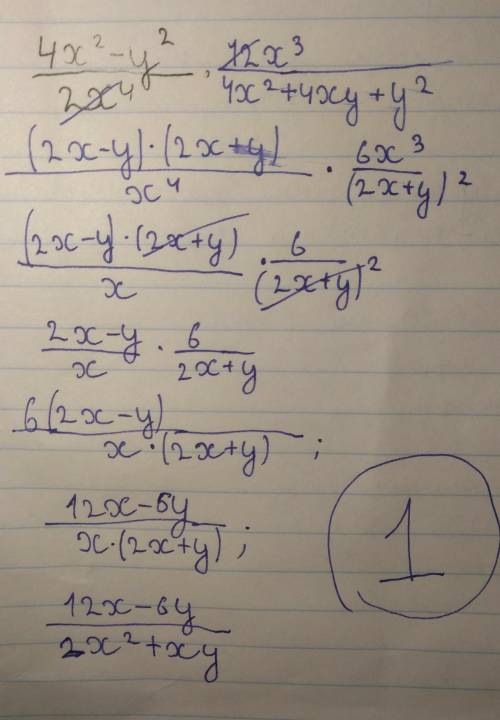 4x² - y² / 2x⁴ · 12x³ / 4x² + 4xy + y²
(2x-y)·(2x+y) / x⁴ · 6x³ / (2x+y)²
(2x-y)·(2x+y) / x · 6 / (2x+y)²
2x-y / x · 6 / 2x+y
6(2x-y) / x·(2x+y) ;
12x-6y / x·(2x+y) ;
12x-6y / 2x²+xy
1